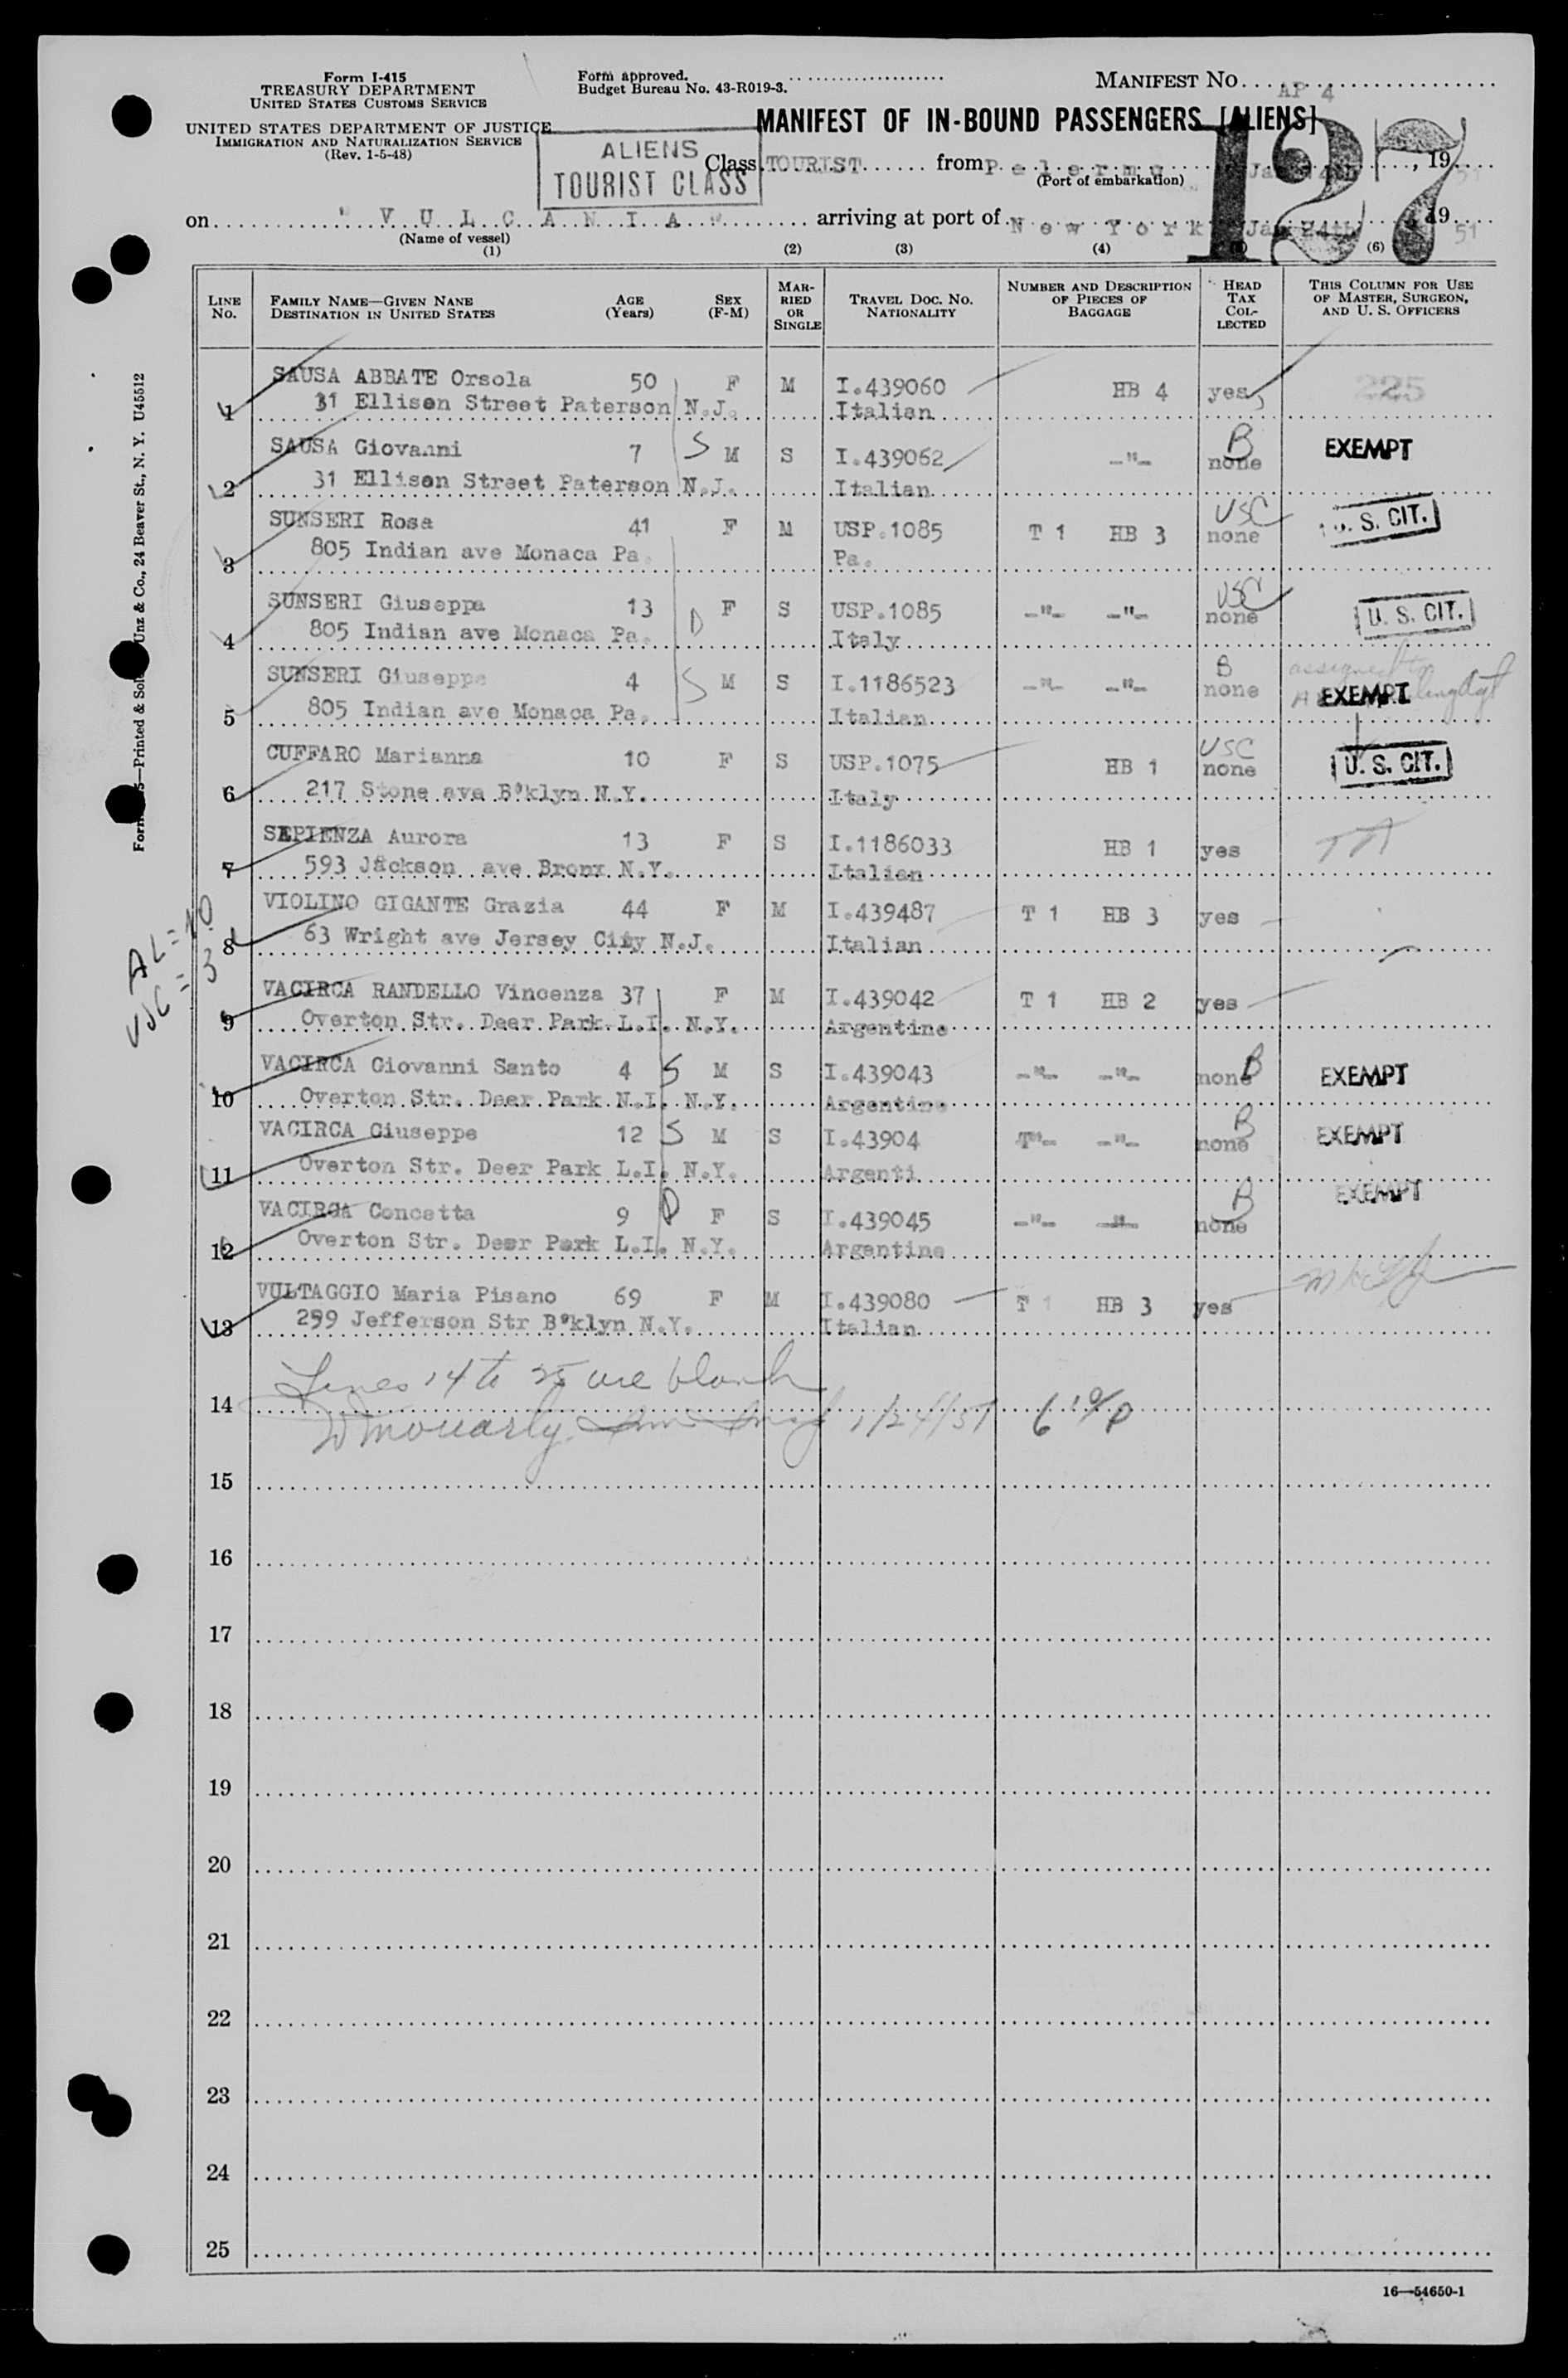 Form I-415
TREASURY DEPARTMENT
UNITED STATES CUSTOMS SERVICE
UNITED STATES DEPARTMENT OF JUSTICE
IMMIGRATION AND NATURALIZATION SERVICE
(Rev. 1-5-48)
Form approved.
Budget Bureau No. 43-R019-3.
MANIFEST NO. AP 4
MANIFEST OF IN-BOUND PASSENGERS [ALIENS]
127
ALIENS
TOURIST CLASS
Class TOURIST from Palermo, Jan 14th, 19 51
(Port of embarkation)
on " VULCANIA " arriving at port of New York Jan 24th 19 51
(Name of vessel)
(1) (2) (3) (4) (6)
LINE NO. FAMILY NAME—GIVEN NANE DESTINATION IN UNITED STATES AGE (Years) SEX (F-M) MARRIED OR SINGLE TRAVEL DOC. NO. NATIONALITY NUMBER AND DESCRIPTION OF PIECES OF BAGGAGE HEAD TAX COLLECTED THIS COLUMN FOR USE OF MASTER, SURGEON, AND U. S. OFFICERS
SAUSA ABBATE Orsola 50 F M I.439060 HB 4 yes 225
1 31 Ellison Street Paterson N.J. Italian
SAUSA Giovanni 7 S M S I.439062 -"- B none EXEMPT
2 31 Ellison Street Paterson N.J. Italian
SUNSERI Rosa 41 F M USP.1085 T 1 HB 3 USC none U. S. CIT.
3 805 Indian ave Monaca Pa. Pa.
SUNSERI Giuseppa 13 D F S USP.1085 -"- -"- USC none U. S. CIT.
4 805 Indian ave Monaca Pa. Italy
SUNSERI Giuseppe 4 S M S I.1186523 -"- -"- B none assigned to EXEMPT
5 805 Indian ave Monaca Pa. Italian
CUFFARO Marianna 10 F S USP.1075 HB 1 USC none U. S. CIT.
6 217 Stone ave B'klyn N.Y. Italy
SAPIENZA Aurora 13 F S I.1186033 HB 1 yes
7 593 Jackson ave Bronx N.Y. Italian
VIOLINO GIGANTE Grazia 44 F M I.439487 T 1 HB 3 yes
8 63 Wright ave Jersey City N.J. Italian
AL = 10
USC = 3
VACIRCA RANDELLO Vincenza 37 F M I.439042 T 1 HB 2 yes
9 Overton Str. Deer Park L.I. N.Y. Argentine
VACIRCA Giovanni Santo 4 S M S I.439043 -"- -"- none B EXEMPT
10 Overton Str. Deer Park N.I. N.Y. Argentine
VACIRCA Giuseppe 12 S M S I.43904 T"- -"- B none EXEMPT
11 Overton Str. Deer Park L.I. N.Y. Argenti
VACIRCA Concetta 9 D F S I.439045 -"- -"- B none EXEMPT
12 Overton Str. Deer Park L.I. N.Y. Argentine
VULTAGGIO Maria Pisano 69 F M I.439080 T 1 HB 3 yes
13 299 Jefferson Str B'klyn N.Y. Italian
Lines 14 to 25 are blank
14
1/24/51
15
16
17
18
19
20
21
22
23
24
25
16—54650-1
Unz & Co., 24 Beaver St., N. Y. U45512